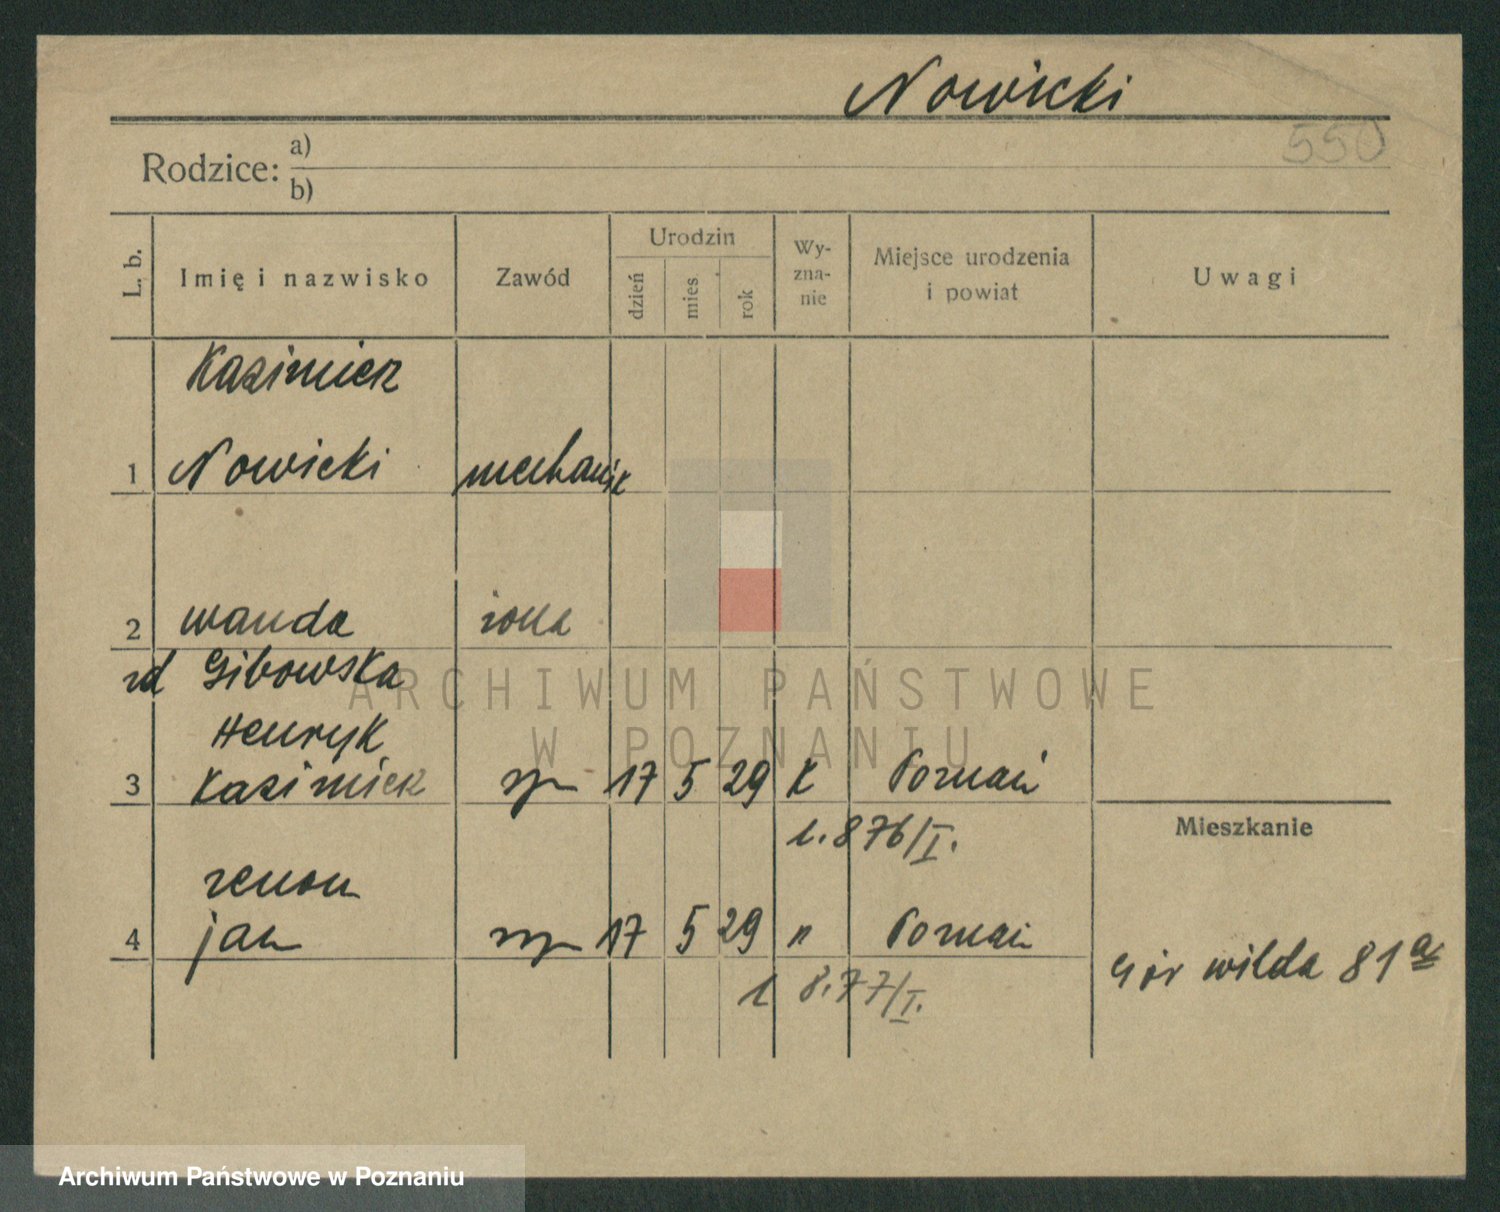 Nowicki
550
Rodzice: a)
b)
L. b. Imię i nazwisko Zawód Urodzin dzień mies rok Wy-zna-nie Miejsce urodzenia i powiat Uwagi
Kazimierz
1 Nowicki mechanik
2 Wanda żona
zd Gibowska
Henryk
3 Kazimierz syn 17 5 29 K Poznań
l. 876/I.
Mieszkanie
Zenon
4 Jan syn 17 5 29 " Poznań
Gór Wilda 81a
l 877/I.
ARCHIWUM PAŃSTWOWE
W POZNANIU
Archiwum Państwowe w Poznaniu